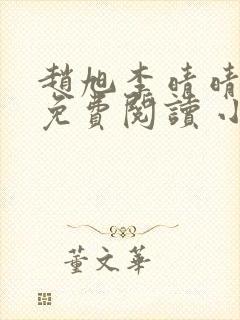 趙旭李晴晴
免費閱讀小
董文華